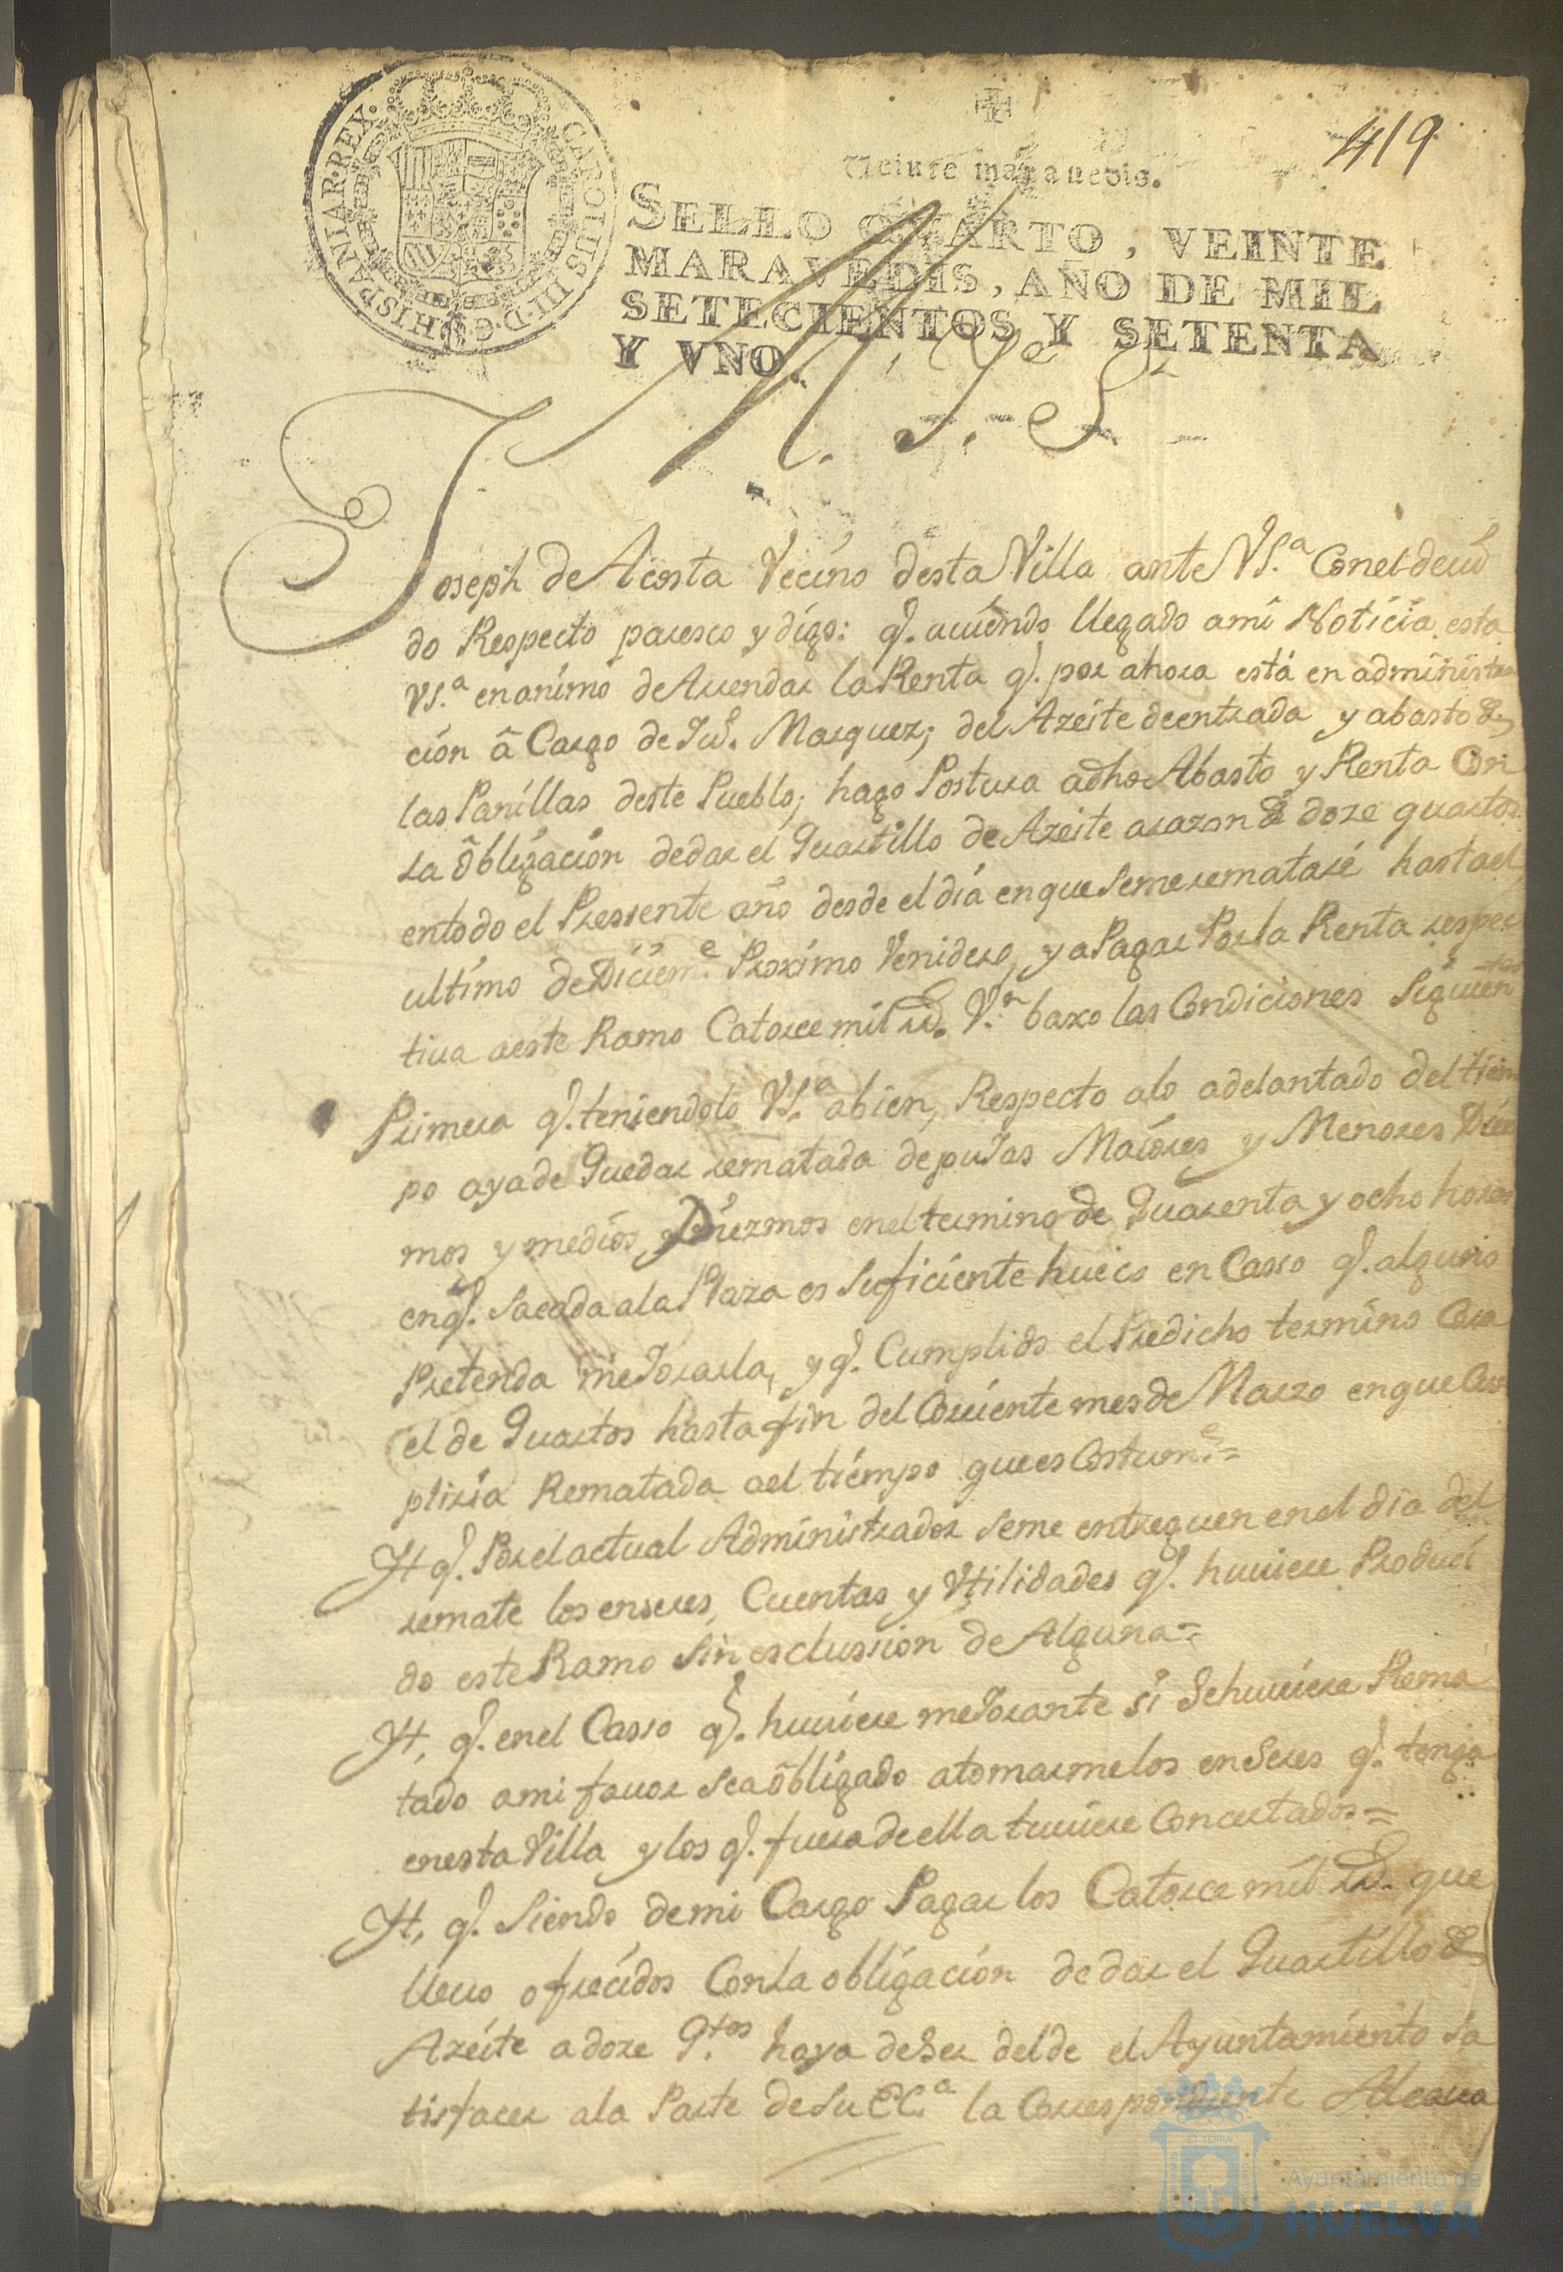 419
CAROLUS III. D. G. HISPANIAR. REX.
Veinte marauedis.
SELLO QVARTO, VEINTE
MARAVEDIS, AÑO DE MIL
SETECIENTOS Y SETENTA
Y VNO.
M. Ye. S.
Joseph de Acosta Vecino desta Villa ante VS.ª Conel deui
do Respecto paresco y digo: q. auiendo llegado ami Noticia esta
VS.ª en animo de Arrendar la Renta q. por ahora está en administra
ción â Cargo de Jû. Marquez; del Azeite de entrada y abasto de
las Panillas deste Pueblo; hago Postura adho Abasto y Renta Con
la ôbligación dedar el Quartillo de Azeite arazon de doze quartos
entodo el Pressente año desde el día en que seme rematare hasta el
ultimo de Diciem.e Proximo Venidero, y a Pagar Por la Renta respec
tiua aeste Ramo Catorce mil rs. V.n baxo las Condiciones Siguientes
Primera q. teniendolo VS.ª abien, Respecto alo adelantado del tiem
po aya de Quedar rematada de puJas Maiores y Menores Diez
mos y medios Diezmos enel termino de Quarenta y ocho horas
enq. sacada ala Plaza es suficiente hueco en Casso q. alguno
Pretenda meJorarla, y q. Cumplido el Predicho termino Corra
el de Quartos hasta fin del Corriente mes de Marzo en que Cum
pliria Rematada ael tiempo que es Costum.e=
Yt q. Por el actual Administrador seme entreguen en el dia del
remate los enseres, Cuentas y Vtilidades q. huuiere Produci
do este Ramo sin esclussion de Alguna=
Yt, q. en el Casso q. huuiere meJorante si Se huuiere Rema
tado ami fauor sea ôbligado atomarme los enSeres q. tenga
en esta Villa y los q. fuera de ella tuuiere Concertados=
Yt, q. Siendo de mi Cargo Pagar los Catorce mil rs. que
lleuo ofrecidos Con la obligación de dar el Quartillo de
Azeite a doze q.tos haya deSer del de el Ayuntamiento sa
tisfacer ala Parte de Su EC.ª la Correspondiente Alcaua
Ayuntamiento de
HUELVA